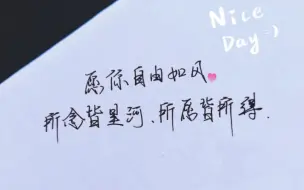 Nice
Day :)
愿你自由如风
所念皆星河、所愿皆所得.